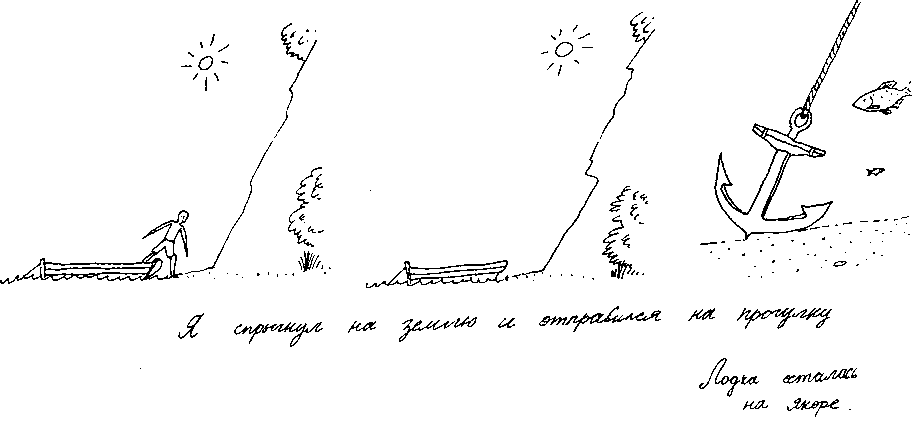 Я спрыгнул на землю и отправился на прогулку
Лодка осталась
на якоре.